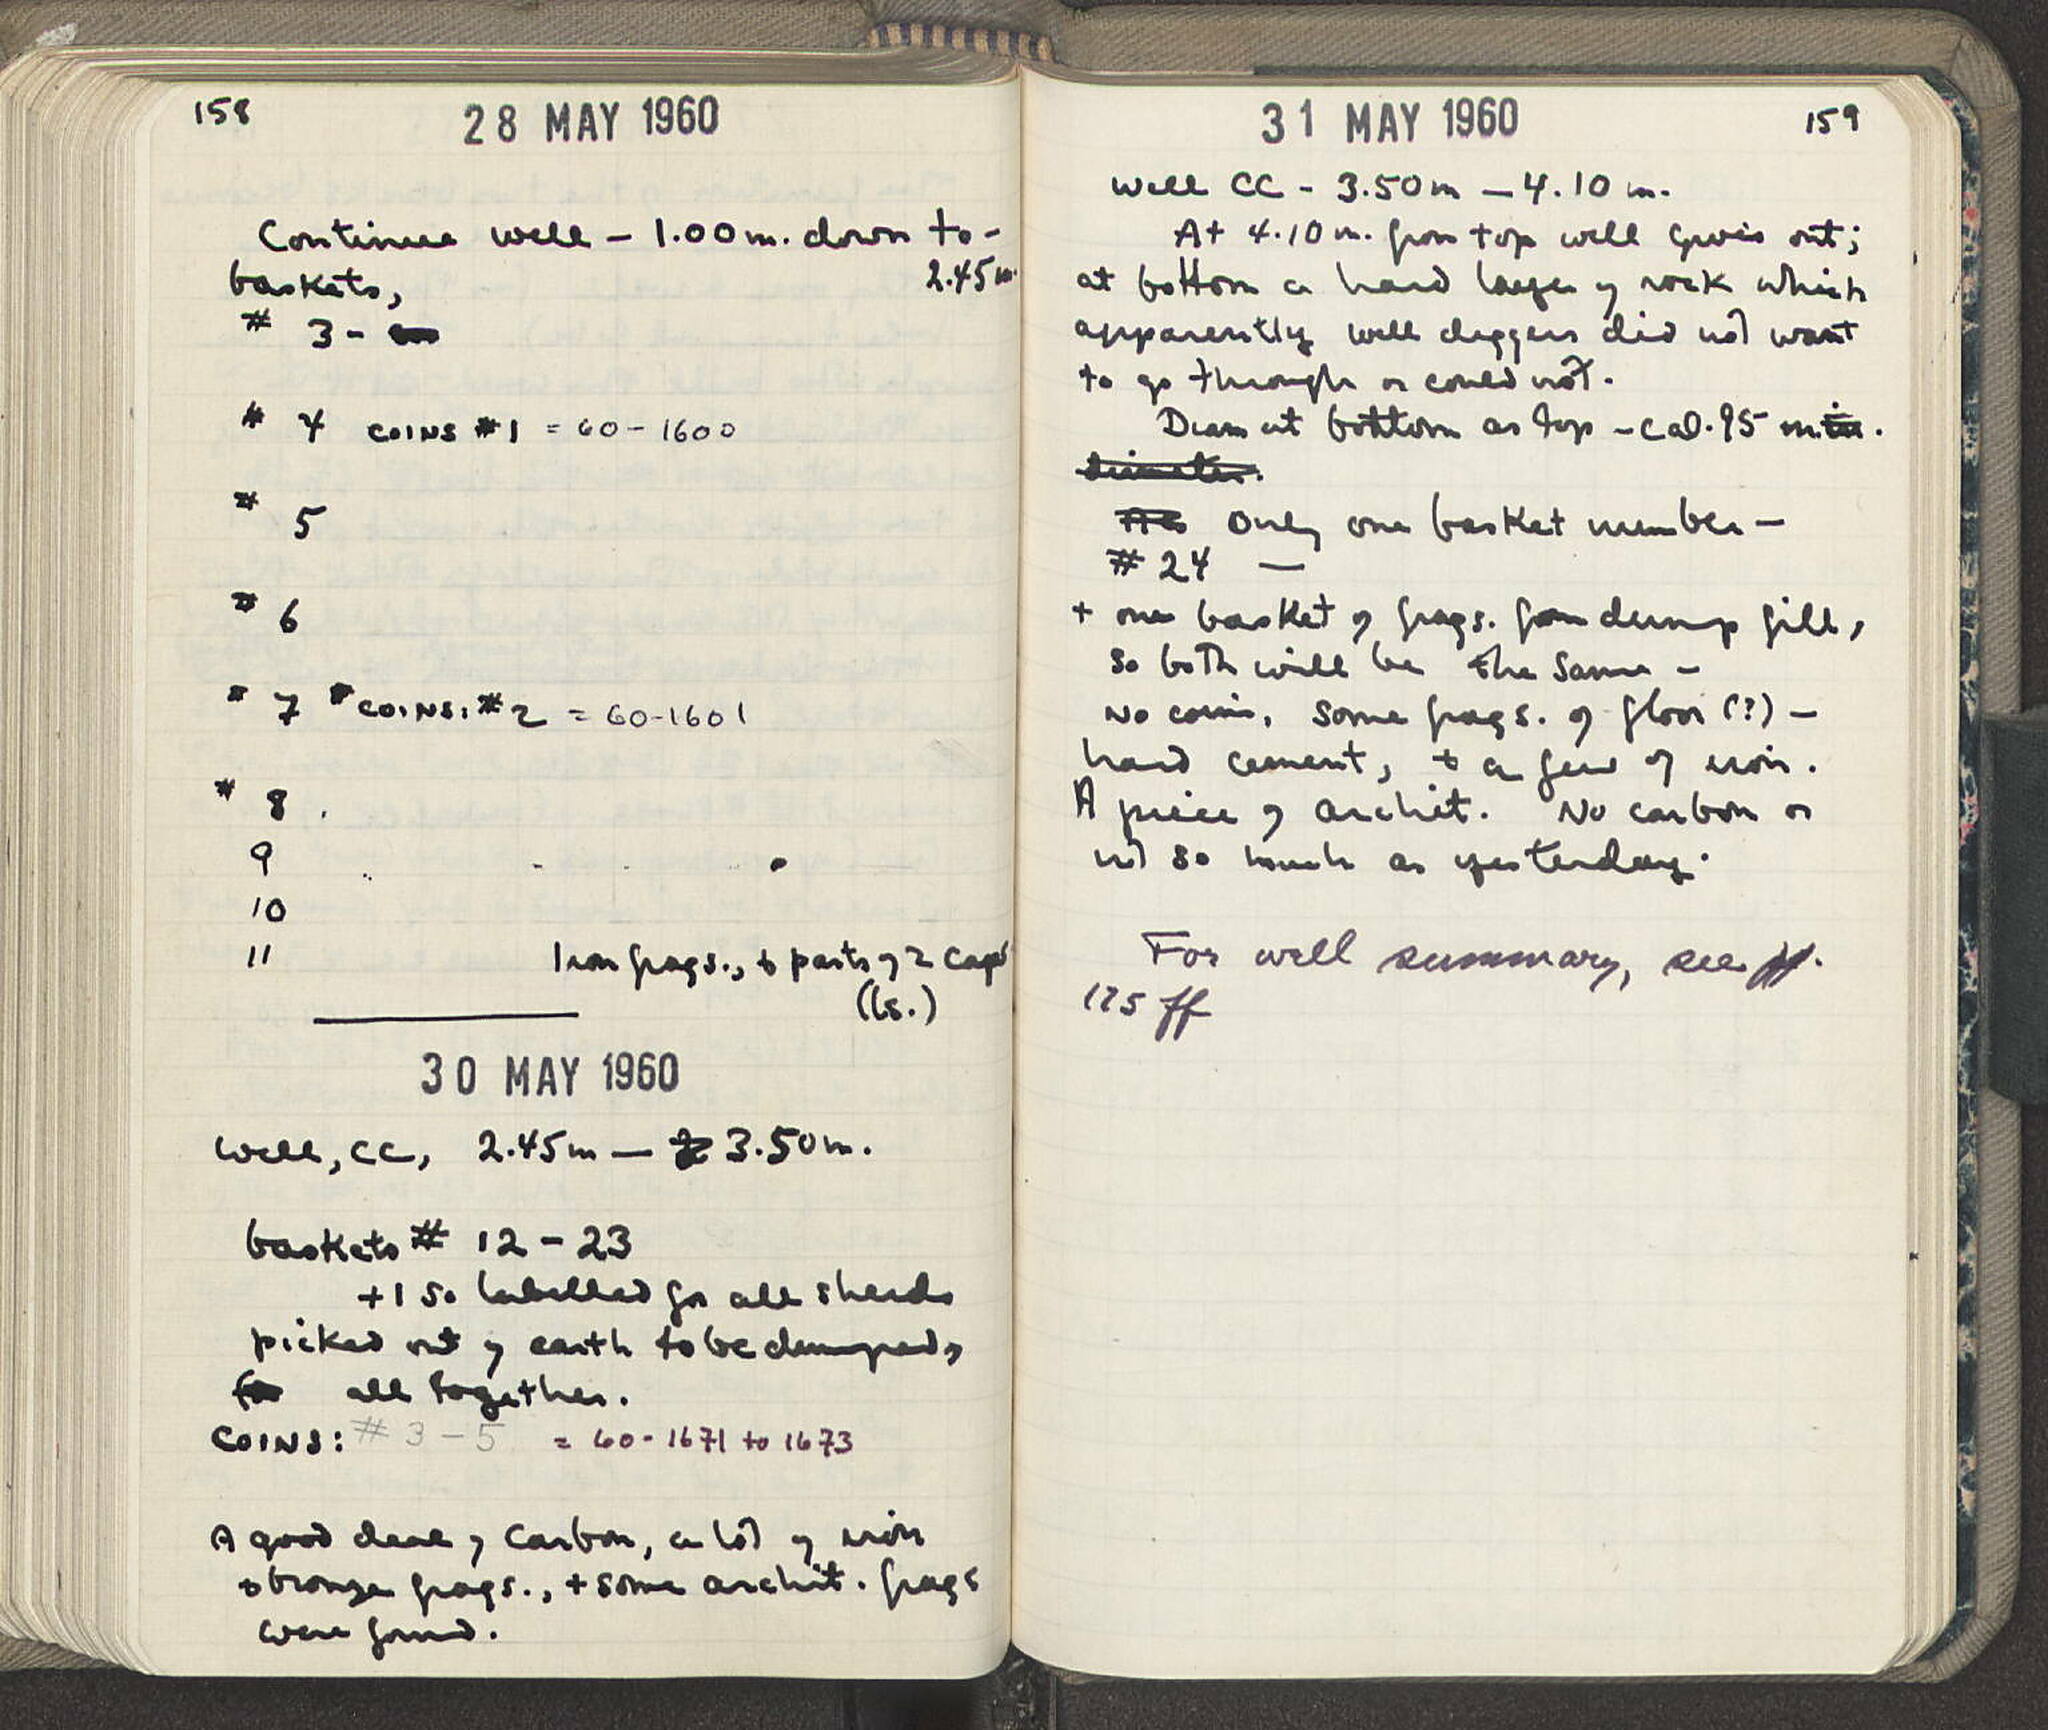 158
28 MAY 1960
Continue well - 1.00 m. down to -
2.45 m.
baskets,
# 3 -
# 4 COINS #1 = 60-1600
# 5
# 6
# 7 COINS: #2 = 60-1601
# 8
9
10
11 Iron frags., & parts of 2 caps
(ls.)
30 MAY 1960
Well, CC, 2.45m — 3.50m.
baskets # 12 - 23
+ 1 so labelled for all sherds
picked out of earth to be dumped,
all together.
COINS: # 3 - 5 = 60-1671 to 1673
A good deal of carbon, a lot of iron
& bronze frags., + some archit. frags
were found.
159
31 MAY 1960
Well CC - 3.50m — 4.10 m.
At 4.10 m. from top well gives out;
at bottom a hard layer of rock which
apparently well diggers did not want
to go through or could not.
Diam at bottom as top - ca 0.95 m.
diameter.
Only one basket number —
# 24 —
+ one basket of frags. from dump fill,
so both will be the same -
No coins, some frags. of floor (?) -
hard cement, & a few of iron.
A piece of archit. No carbon or
not so much as yesterday.
For well summary, see pp.
175 ff